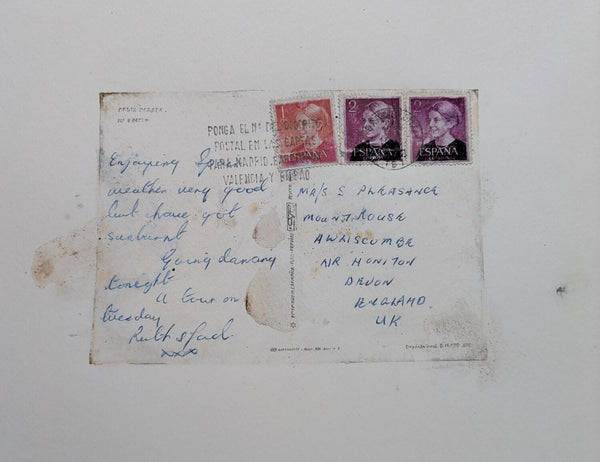 COSTA DORADA
PONGA EL Nº DEL DISTRITO
POSTAL EN LAS CARTAS
PARA MADRID, BARCELONA
VALENCIA Y BILBAO
1
2
2
ESPAÑA
ESPAÑA
ESPAÑA
Enjoying Spain
weather very good
but have got
sunburnt
Going dancing
tonight
A tour on
tuesday
xxx
MR/S S PLEASANCE
MOUNT HOUSE
AWLISCOMBE
NR HONITON
DEVON
ENGLAND
UK